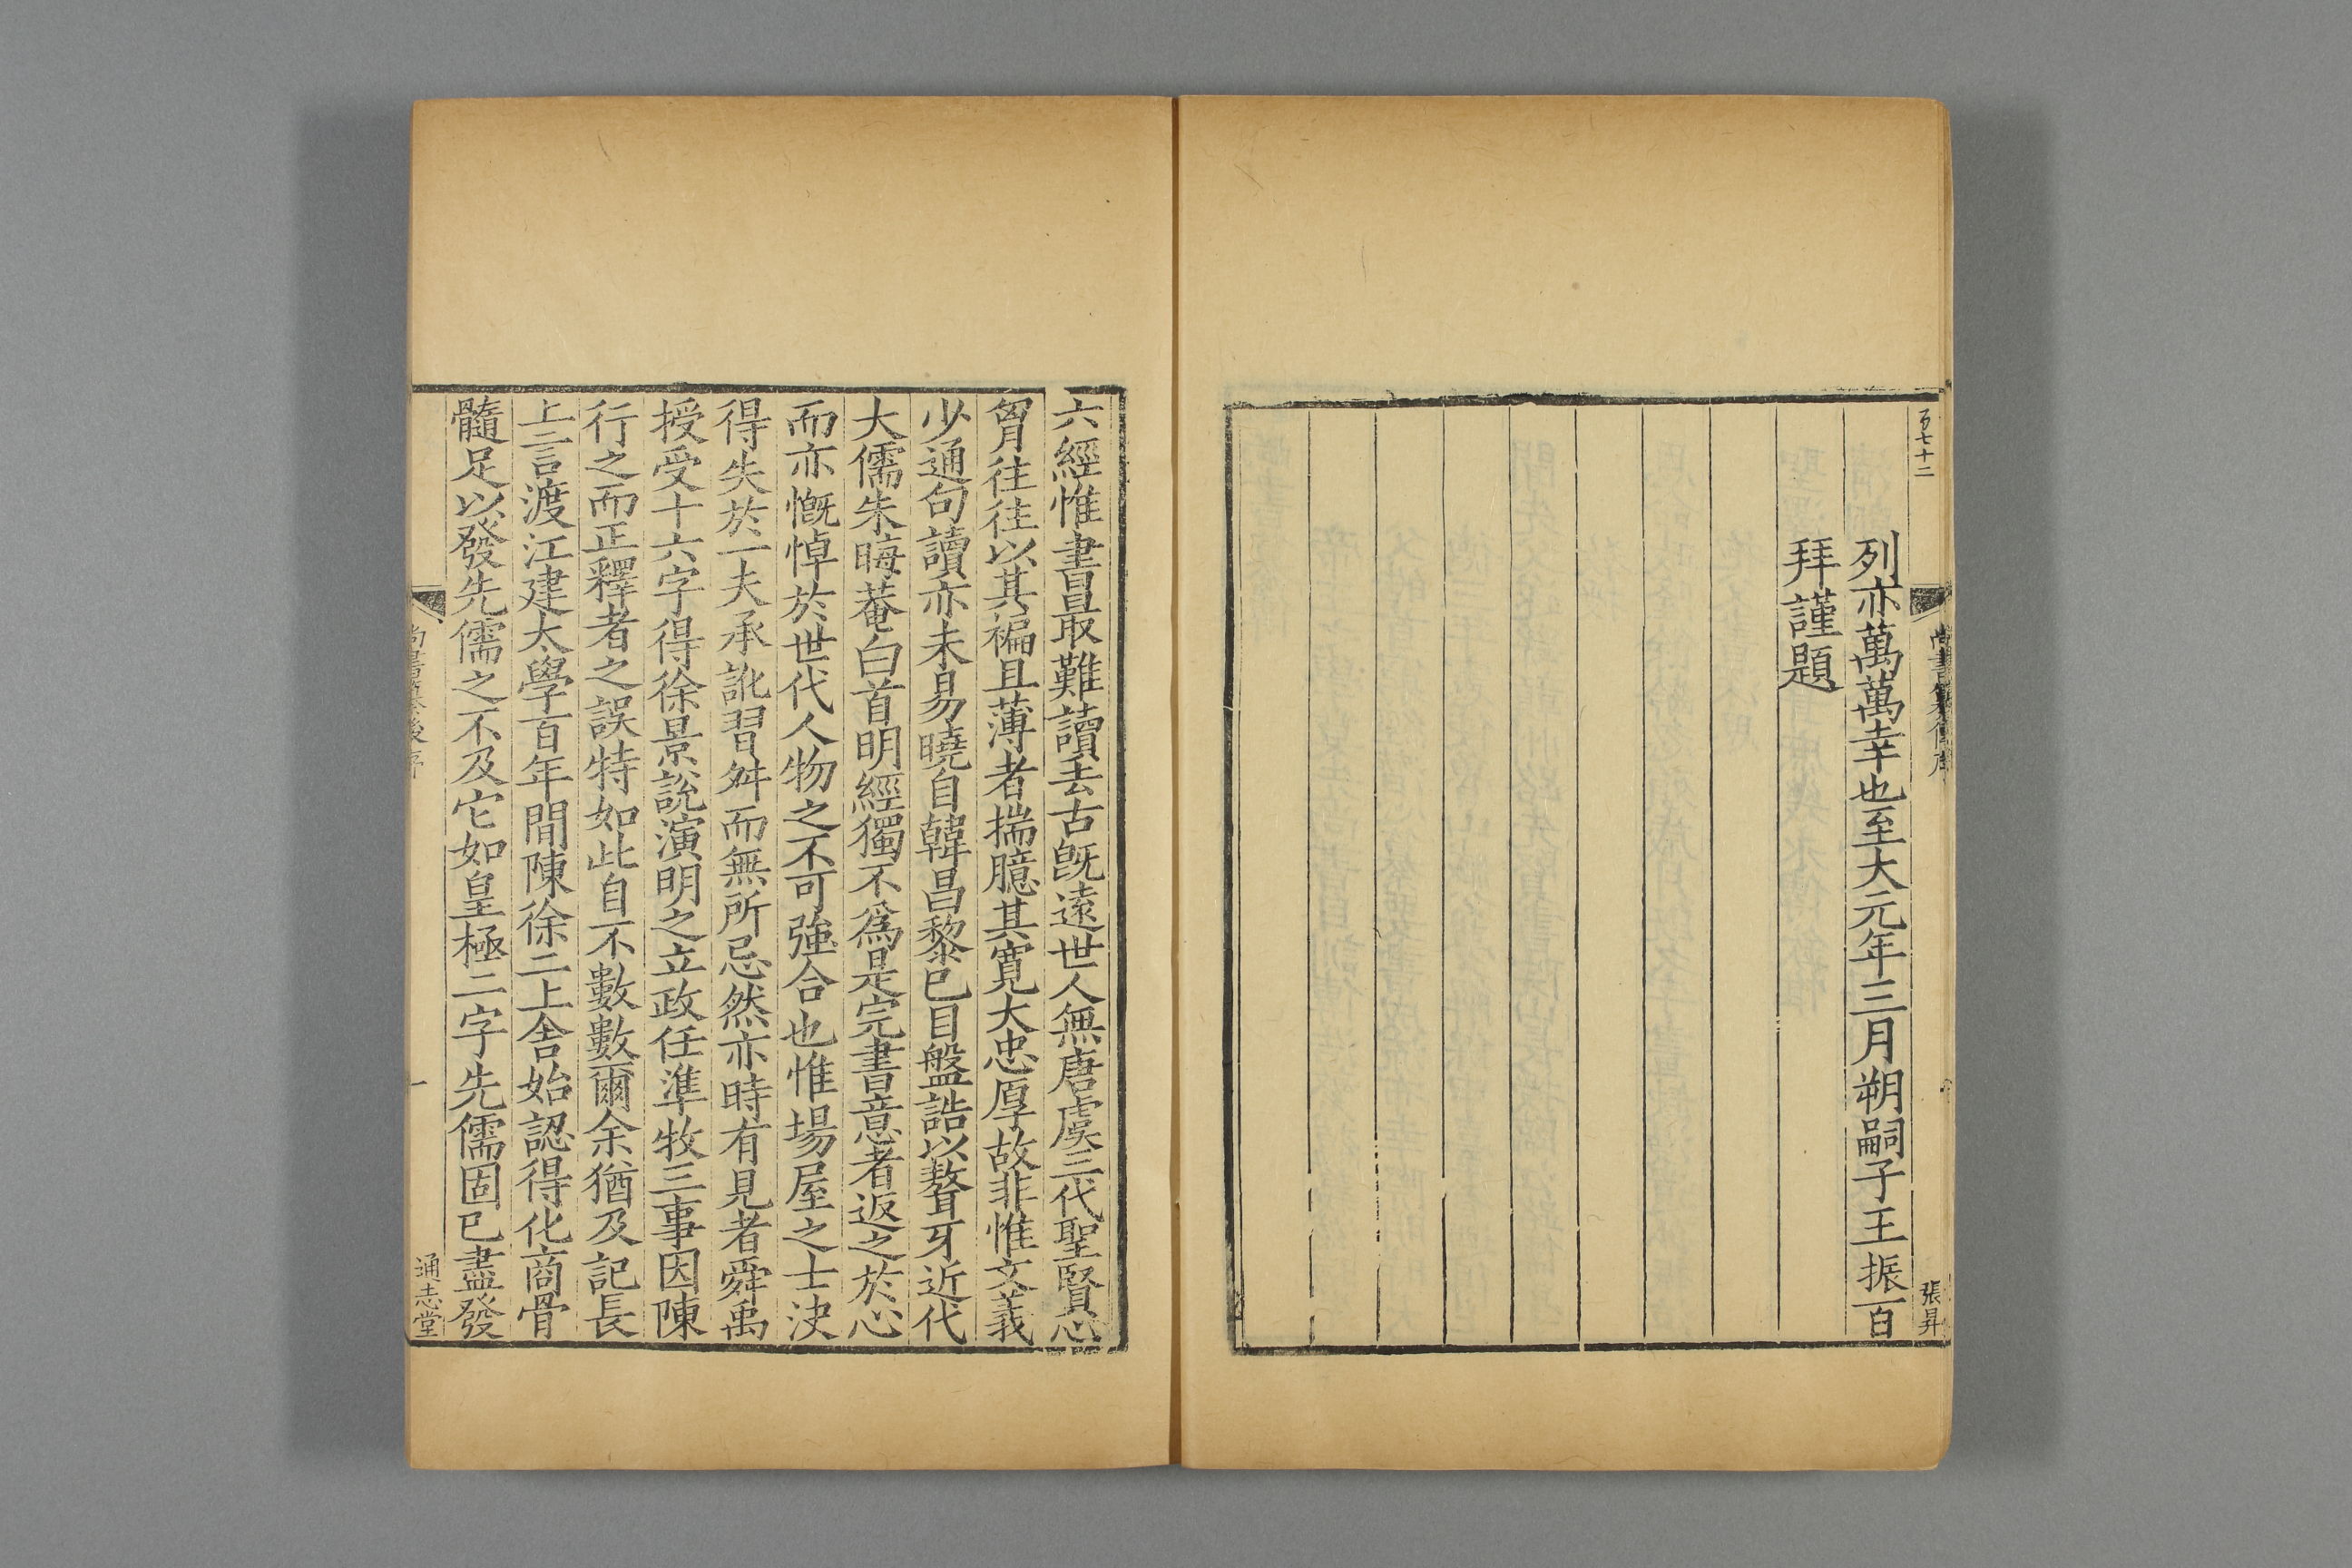 百七十二
張昇
列亦萬萬幸也至大元年三月朔嗣子王振百
拜謹題
六經惟書最難讀去古旣遠世人無唐虞三代聖賢心
胷往往以其褊且薄者揣臆其寬大忠厚故非惟文義
少通句讀亦未易曉自韓昌黎已目盤誥以聱牙近代
大儒朱晦菴白首明經獨不爲是完書意者返之於心
而亦慨悼於世代人物之不可強合也惟場屋之士決
得失於一夫承訛習舛而無所忌然亦時有見者舜禹
授受十六字得徐景說演明之立政任準牧三事因陳
行之而正釋者之誤特如此自不數數爾余猶及記長
上言渡江建太學百年間陳徐二上舍始認得化商骨
髓足以發先儒之不及它如皇極二字先儒固已盡發
一
通志堂